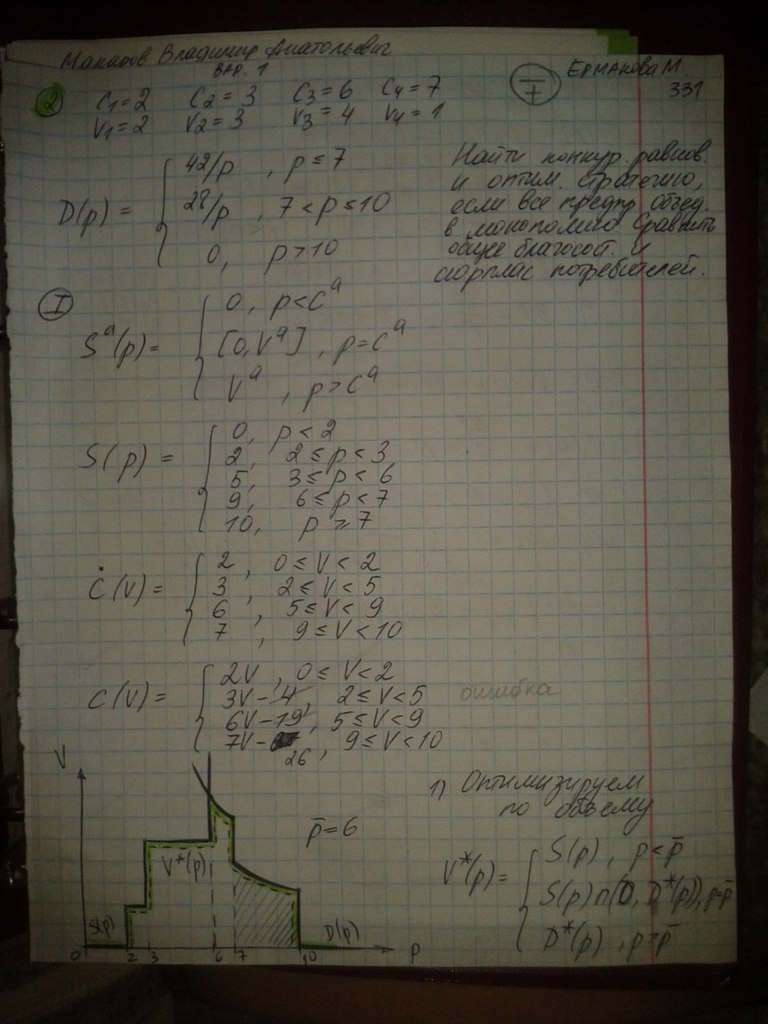 Макаров Владимир Анатольевич
ВАР. 1
Ермакова М.
331
∓
② C₁=2 C₂=3 C₃=6 C₄=7
V₁=2 V₂=3 V₃=4 V₄=1
D(p) = { 42/p, p ≤ 7
28/p, 7 < p ≤ 10
0, p > 10
Найти конкур. равнов.
и оптим. стратегию,
если все предпр. объед.
в монополию. Сравнить
общее благосост. и
потребителей.
Ⓘ
Sᵃ(p) = { 0, p < Cᵃ
[0, Vᵃ], p = Cᵃ
Vᵃ, p > Cᵃ
S(p) = { 0, p < 2
2, 2 ≤ p < 3
5, 3 ≤ p < 6
9, 6 ≤ p < 7
10, p ≥ 7
Ċ(v) = { 2, 0 ≤ V < 2
3, 2 ≤ V < 5
6, 5 ≤ V < 9
7, 9 ≤ V < 10
C(v) = { 2V, 0 ≤ V < 2
3V-4, 2 ≤ V < 5
6V-19, 5 ≤ V < 9
7V-26, 9 ≤ V < 10
ошибка
V
p̄=6
V*(p)
S(p)
D(p)
0 2 3 6 7 10 p
1) Оптимизируем
по объему
V*(p) = { S(p), p < p̄
S(p)∩(0, D*(p)), p=p̄
D*(p), p > p̄